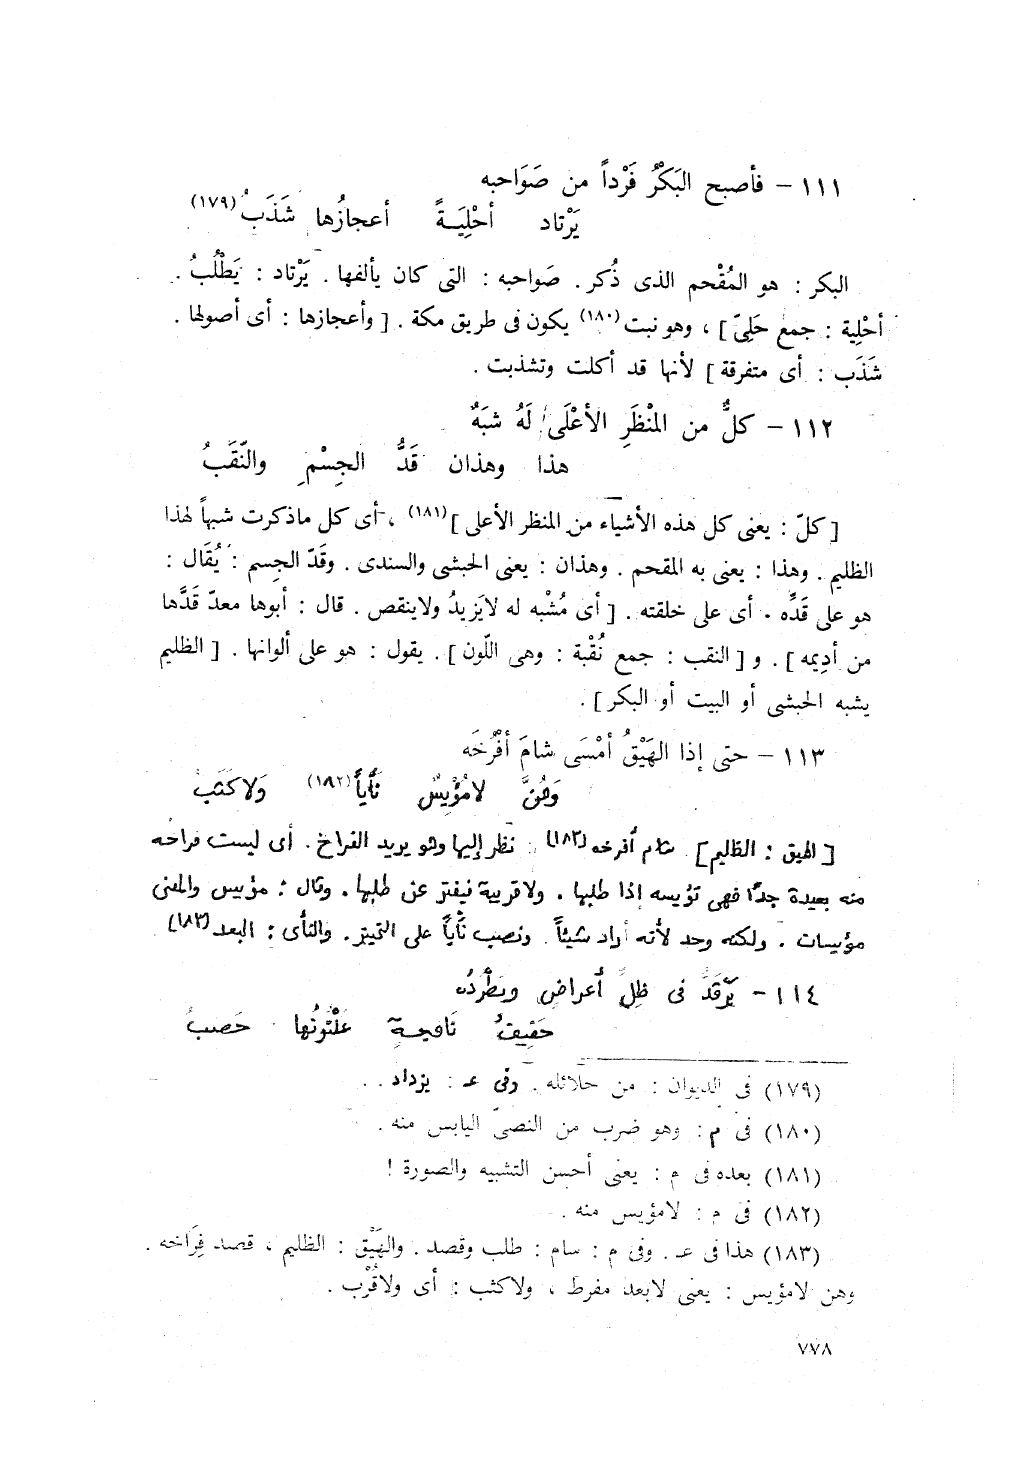 ١١١ – فأصبح البَكْرُ فَرْداً من صَوَاحبه
يَرْتاد أحْلِيَةً أعجازُها شَذَبُ(١٧٩)
البكر : هو المُقْحم الذى ذُكر . صَواحبه : التى كان يألفها . يَرْتاد : يَطْلُبُ .
أحْلِية : جمع حَلِىّ ] ، وهو نبت(١٨٠) يكون فى طريق مكة . [ وأعجازها : أى أصولها .
شَذَب : أى متفرقة ] لأنها قد أكلت وتشذبت .
١١٢ – كلٌّ من المنْظَرِ الأعْلَى لَهُ شبَهٌ
هذا وهذان قَدُّ الجِسْمِ والنّقَبُ
[ كلّ : يعنى كل هذه الأشياء من المنظر الأعلى ](١٨١) ، أى كل ماذكرت شبهاً لهذا
الظليم . وهذا : يعنى به المقحم . وهذان : يعنى الحبشى والسندى . وقَدّ الجسم : يُقَال :
هو على قَدِّه . أى على خلقته . [ أى مُشْبه له لايَزيدُ ولاينقص . قال : أبوها معدّ قَدَّها
من أدِيمه ] . و [ النقب : جمع نُقْبة : وهى اللّون ] . يقول : هو على ألوانها . [ الظليم
يشبه الحبشى أو البيت أو البكر ] .
١١٣ – حتى إذا الهَيْقُ أمْسَى شامَ أفْرُخَه
وَهُنَّ لامُؤْيِسٌ نَأْياً(١٨٢) وَلاكَثَبُ
[ الهيق : الظليم ] شام أفرخه(١٨٣) : نظر إليها وهو يريد الفراخ . أى ليست فراخه
منه بعيدة جدًّا فهى تؤيسه إذا طلبها . ولاقريبة فيفتر عن طلبها . وقال : مؤيس والمعنى
مؤيسات . ولكنه وحد لأنه أراد شيئاً ونصب نَأْياً على التمييز . والنأى : البعد(١٨٣)
١١٤ – يَرْقَدُّ فى ظِلِّ أعراضٍ ويَطْرُدُه
حَفِيفُ نَافِجةٍ عُثْنُونُها حَصبُ
(١٧٩) فى الديوان : من حلائله . وفى عـ : يزداد .
(١٨٠) فى م : وهو ضرب من النصىّ اليابس منه .
(١٨١) بعده فى م : يعنى أحسن التشبيه والصورة !
(١٨٢) فى م : لامؤيس منه .
(١٨٣) هذا فى عـ . وفى م : سام : طلب وقصد . والهَيْق : الظليم ، قصد فِرَاخه .
وهن لامؤيس : يعنى لابعد مفرط ، ولاكثب : أى ولاقُرْب .
٧٧٨